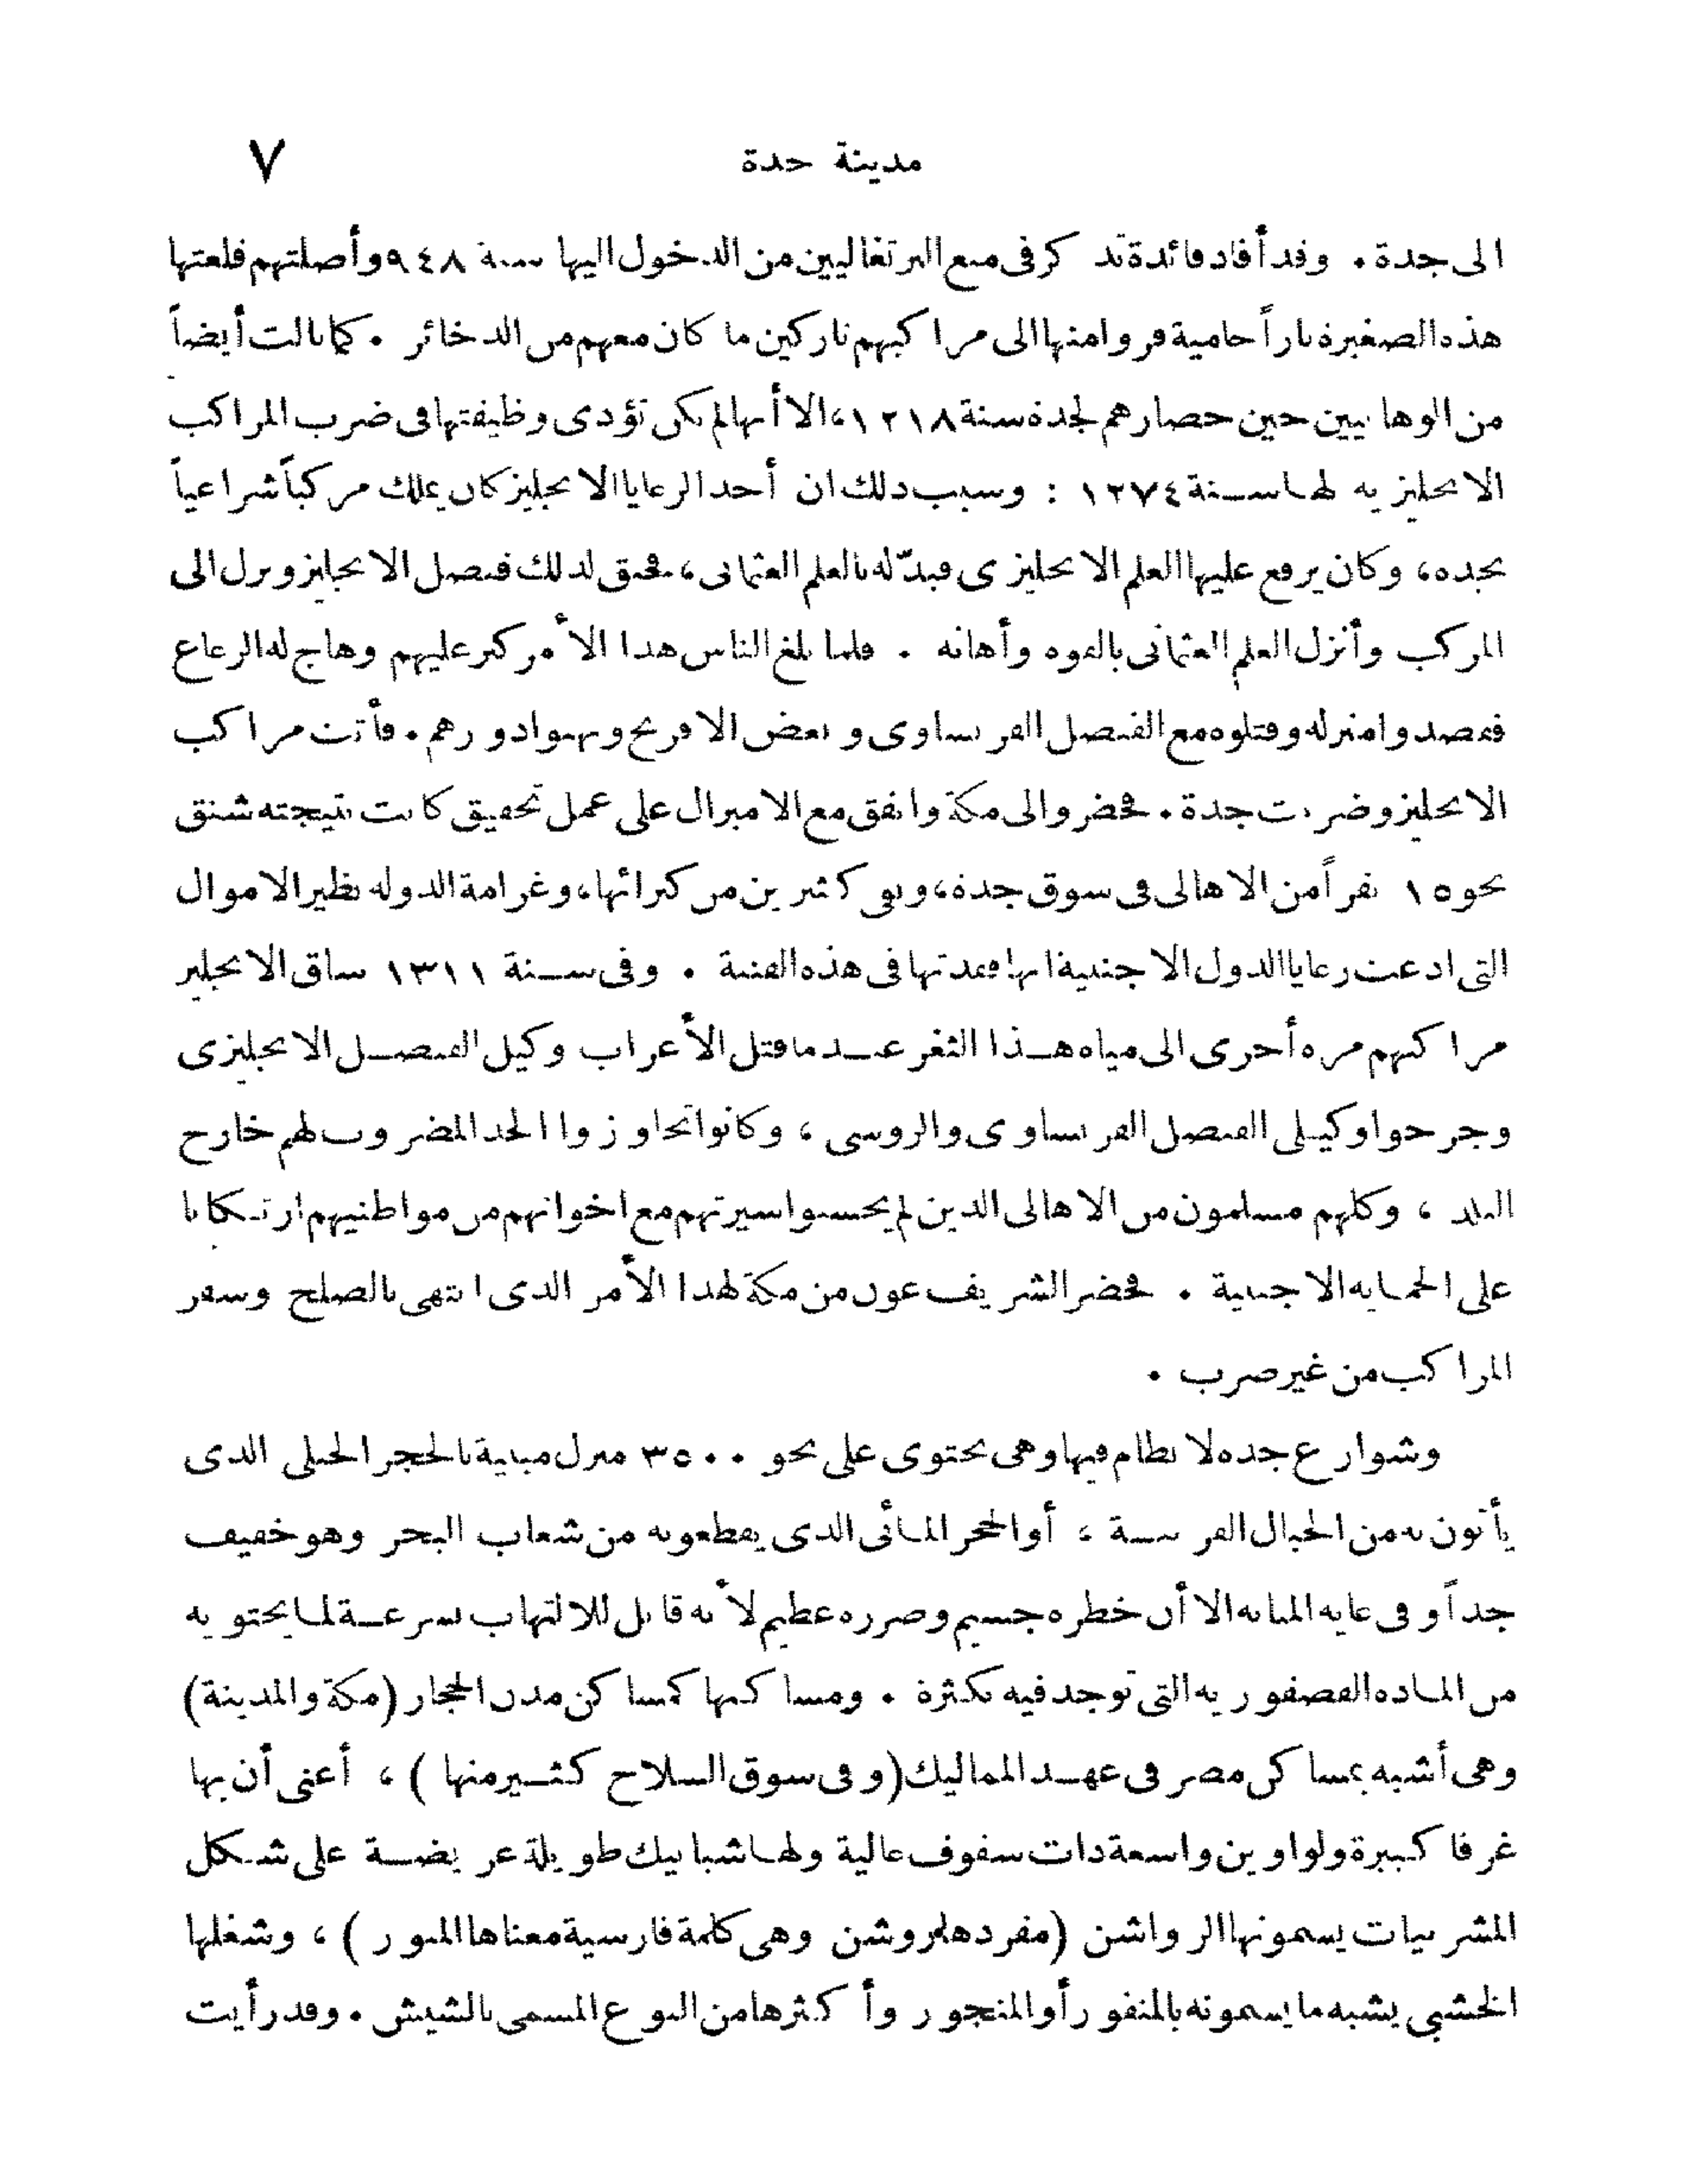 مدينة جدة ٧
الى جدة . وقد أفاد فائدة تذكر فى منع البرتغاليين من الدخول اليها سنة ٩٤٨ وأصلتهم قلعتها
هذه الصغيرة ناراً حامية فروا منها الى مراكبهم تاركين ما كان معهم من الذخائر . كما نالت أيضاً
من الوهابيين حين حصارهم لجدة سنة ١٢١٨، الا أنها لم تكن تؤدى وظيفتها فى ضرب المراكب
الانجليزية لها سنة ١٢٧٤ : وسبب ذلك ان أحد الرعايا الانجليز كان يملك مركباً شراعياً
بجده، وكان يرفع عليها العلم الانجليزى فبدّله بالعلم العثمانى، فحنق لذلك قنصل الانجليز ونزل الى
المركب وأنزل العلم العثمانى بالقوه وأهانه . فلما بلغ الناس هذا الأمر كبر عليهم وهاج له الرعاع
فقصدوا منزله وقتلوه مع القنصل الفرنساوى وبعض الافرنج ونهبوا دورهم . فأتت مراكب
الانجليز وضربت جدة . فحضر والى مكة واتفق مع الاميرال على عمل تحقيق كانت نتيجته شنق
نحو ١٥ نفراً من الاهالى فى سوق جدة، ونفى كثيرين من كبرائها، وغرامة الدوله نظير الاموال
التى ادعت رعايا الدول الاجنبية انها فقدتها فى هذه الفتنة . وفى سنة ١٣١١ ساق الانجليز
مراكبهم مره أخرى الى مياه هذا الثغر عند ما قتل الأعراب وكيل القنصل الانجليزى
وجرحوا وكيلى القنصل الفرنساوى والروسى ، وكانوا تجاوزوا الحد المضروب لهم خارج
البلد ، وكلهم مسلمون من الاهالى الذين لم يحسنوا سيرتهم مع اخوانهم من مواطنيهم ارتكانا
على الحمايه الاجنبية . فحضر الشريف عون من مكة لهذا الأمر الذى انتهى بالصلح وسفر
المراكب من غير ضرب .
وشوارع جده لا نظام فيها وهى تحتوى على نحو ٣٥٠٠ منزل مبنية بالحجر الجبلى الذى
يأتون به من الجبال القريبة ، أو الحجر المائى الذى يقطعونه من شعاب البحر وهو خفيف
جداً وفى غايه المتانه الا أن خطره جسيم وضرره عظيم لأنه قابل للالتهاب بسرعة لما يحتويه
من الماده الفصفوريه التى توجد فيه بكثرة . ومساكنها كمساكن مدن الحجاز (مكة والمدينة)
وهى أشبه بمساكن مصر فى عهد المماليك (وفى سوق السلاح كثير منها ) ، أعنى أن بها
غرفا كبيرة ولواوين واسعة ذات سقوف عالية ولها شبابيك طويلة عريضة على شكل
المشربيات يسمونها الرواشن (مفردها روشن وهى كلمة فارسية معناها المنور ) ، وشغلها
الخشبى يشبه ما يسمونه بالمنقور أو المنجور وأكثرها من النوع المسمى بالشيش . وقد رأيت